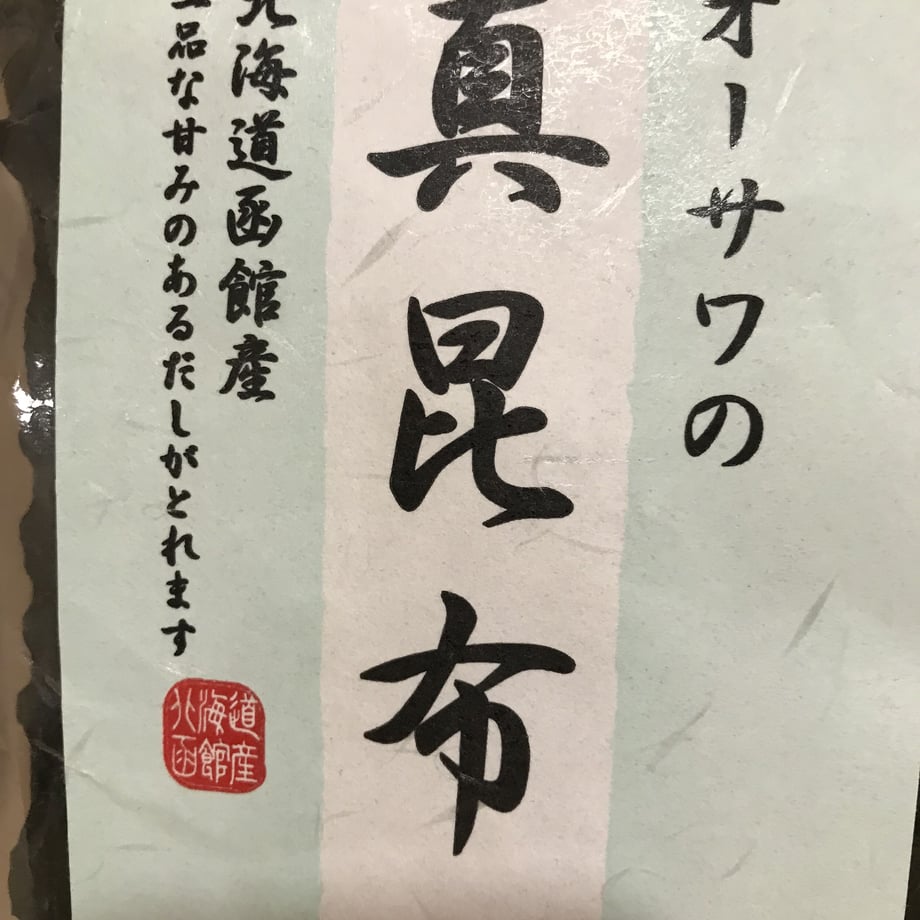 オーサワの
真昆布
北海道函館産
上品な甘みのあるだしがとれます
北海道
函館産